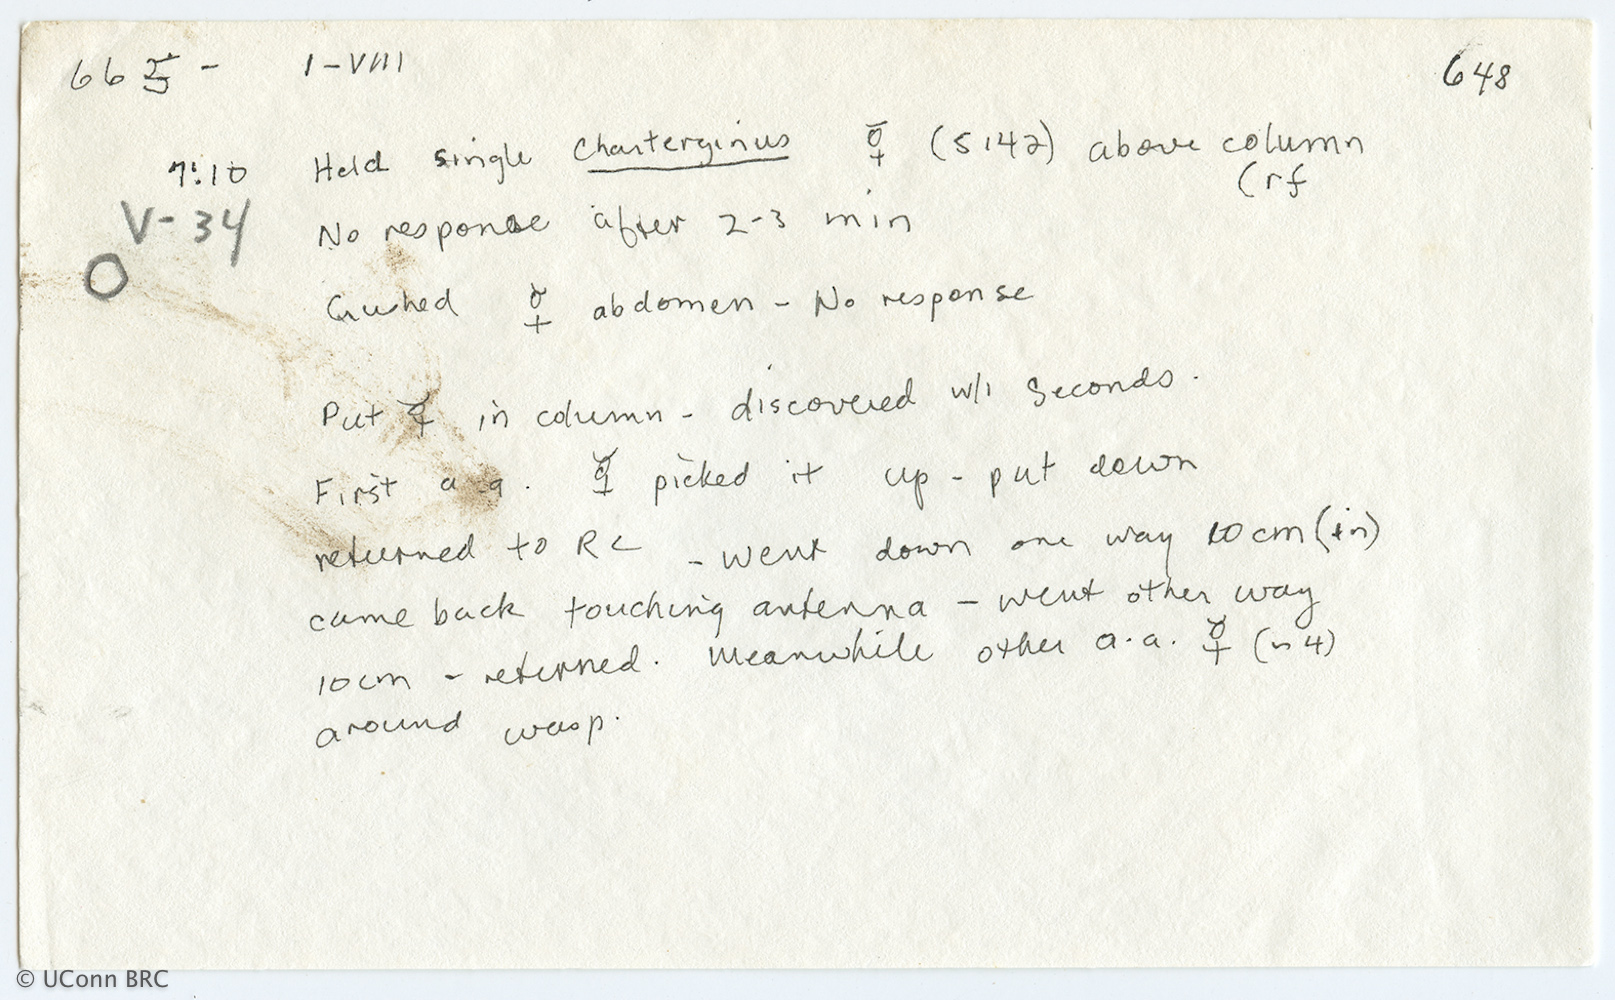 665 - I-VIII 648
7:10 Held single Charterginus ☿ (5142) above column
(rf
V-34 No response after 2-3 min
O
Crushed ☿ abdomen - No response
Put ☿ in column - discovered w/i seconds.
First a.a. ☿ picked it up - put down
returned to RC - went down one way 10 cm (in)
came back touching antenna - went other way
10 cm - returned. Meanwhile other a.a. ☿ (n 4)
around wasp.
© UConn BRC